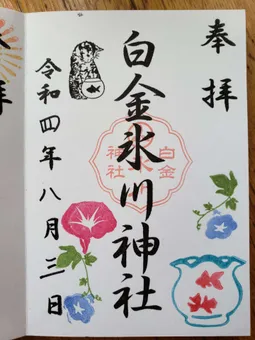 奉拝
白金氷川神社
白金
神社
令和四年八月三日